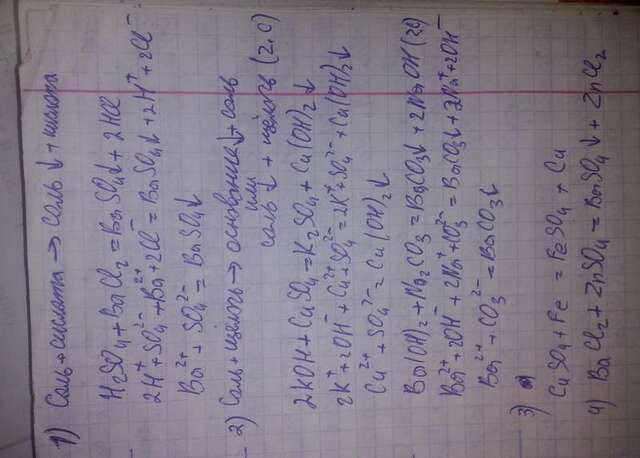 1) Соль+кислота → соль↓+кислота
H₂SO₄+BaCl₂=BaSO₄↓+2HCl
2H⁺+SO₄²⁻+Ba²⁺+2Cl⁻=BaSO₄↓+2H⁺+2Cl⁻
Ba²⁺+SO₄²⁻=BaSO₄↓
2) Соль+щёлочь → основание↓+соль
или
соль↓+щёлочь (2,0)
2KOH+CuSO₄=K₂SO₄+Cu(OH)₂↓
2K⁺+2OH⁻+Cu²⁺+SO₄²⁻=2K⁺+SO₄²⁻+Cu(OH)₂↓
Cu²⁺+SO₄²⁻=Cu(OH)₂↓
Ba(OH)₂+Na₂CO₃=BaCO₃↓+2NaOH
Ba²⁺+2OH⁻+2Na⁺+CO₃²⁻=BaCO₃↓+2Na⁺+2OH⁻
Ba²⁺+CO₃²⁻=BaCO₃↓
3)
CuSO₄+Fe=FeSO₄+Cu
4) BaCl₂+ZnSO₄=BaSO₄↓+ZnCl₂